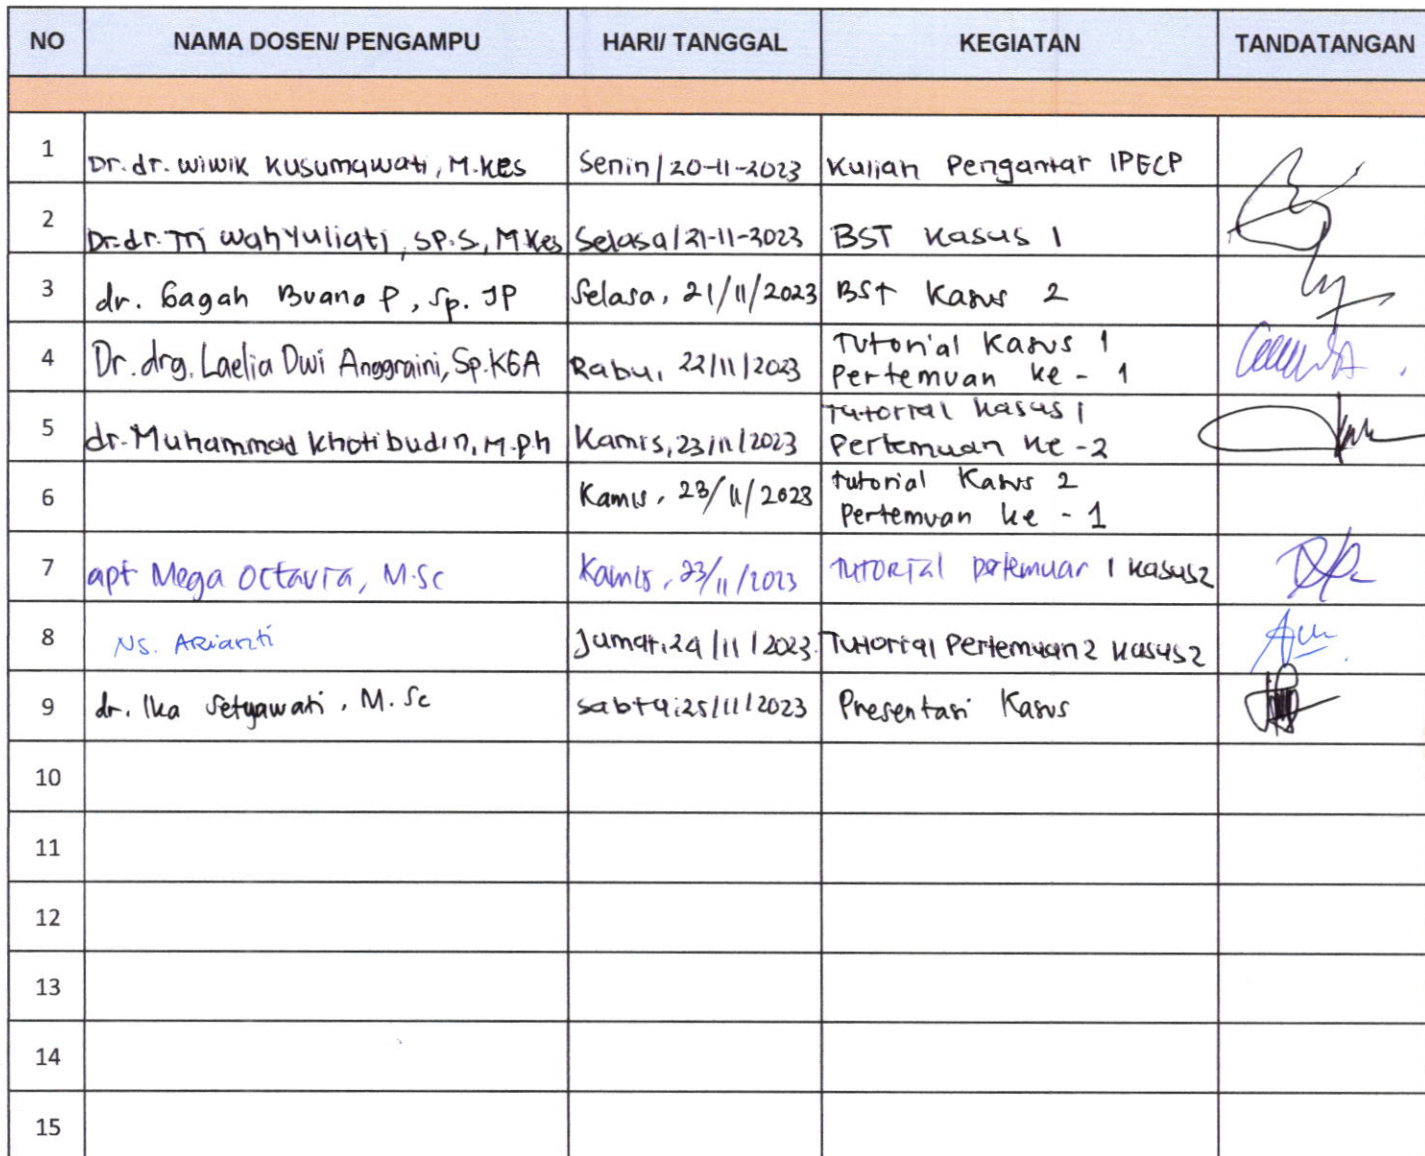 NO NAMA DOSEN/ PENGAMPU HARI/ TANGGAL KEGIATAN TANDATANGAN
1 Dr. dr. Wiwik Kusumawati, M.Kes Senin/20-11-2023 Kuliah Pengantar IPECP
2 Dr. dr. Tri Wahyuliati, SP.S, M.Kes Selasa/21-11-2023 BST Kasus 1
3 dr. Gagah Buana P, Sp. JP Selasa, 21/11/2023 BST Kasus 2
4 Dr. drg. Laelia Dwi Anggraini, Sp.KGA Rabu, 22/11/2023 Tutorial Kasus 1
Pertemuan ke - 1
5 dr. Muhammad Khotibudin, M.Ph Kamis, 23/11/2023 Tutorial Kasus 1
Pertemuan ke - 2
6 Kamis, 23/11/2023 tutorial Kasus 2
Pertemuan ke - 1
7 apt Mega Octavia, M.Sc Kamis, 23/11/2023 Tutorial pertemuan 1 kasus 2
8 Ns. Arianti Jumat, 24/11/2023 Tutorial Pertemuan 2 kasus 2
9 dr. Ika Setyawati, M.Sc Sabtu, 25/11/2023 Presentasi Kasus
10
11
12
13
14
15